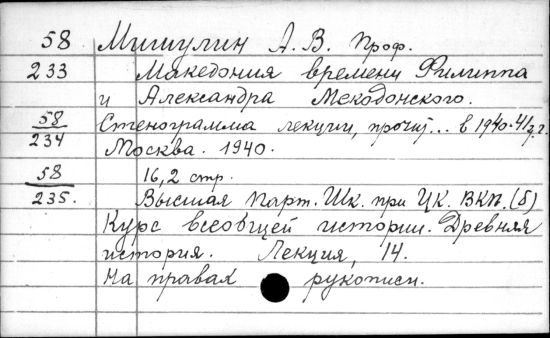 58 Мишулин А. В. Проф.
233 Македония времени Филиппа
и Александра Мекодонского.
58 Стенограмма лекции, прочит... в 1940-41 г.
234 Москва. 1940.
58 16,2 стр.
235. Высшая Парт. Шк. при ЦК. ВКП. (б)
Курс всеобщей истории. Древняя
история. Лекция, 14.
На правах рукописи.